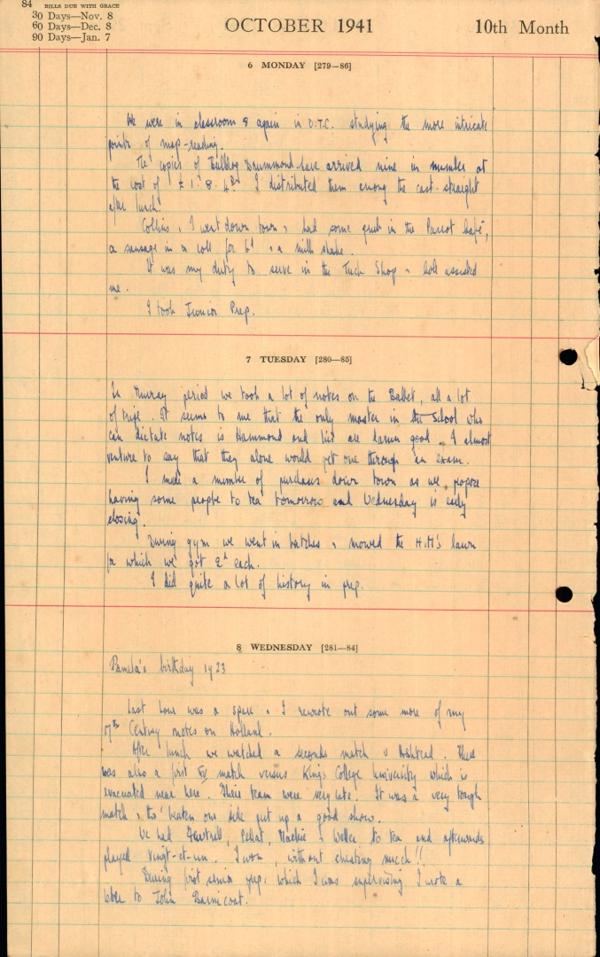 84 BILLS DUE WITH GRACE
30 Days—Nov. 8
60 Days—Dec. 8
90 Days—Jan. 7
OCTOBER 1941
10th Month
6 MONDAY [279—86]
We were in classroom 8 again in O.T.C. studying the more intricate
points of map-reading.
The copies of Bulldog Drummond have arrived nine in number at
the cost of £1. 8. 4d. I distributed them among the cast straight
after lunch.
Collins & I went down town & had some grub in the Parrot Café,
a sausage in a roll for 6d & a milk shake.
It was my duty to serve in the Tuck Shop & assisted
me.
I took Junior Prep.
7 TUESDAY [280—85]
In Murray period we took a lot of notes on the Ballet, all a lot
of tripe. It seems to me that the only master in the School who
can dictate notes is Hammond and his are damn good. I almost
venture to say that they alone would get one through an exam.
I made a number of purchases down town as we propose
having some people to tea tomorrow and Wednesday is early
closing.
During gym we went in batches & mowed the H.M's lawn
for which we got 2d each.
I did quite a lot of history in prep.
8 WEDNESDAY [281—84]
Pamela's birthday 1923
Last hour was a spare & I rewrote out some more of my
17th Century notes on Holland.
After lunch we watched a seconds match v Ashtead. There
was also a first XV match versus King's College University which is
evacuated near here. Their team were very late. It was a very tough
match & tho' beaten our side put up a good show.
We had Pellat, Mackie & to tea and afterwards
played Vingt-et-un. I won, without cheating much!!
During first senior prep, which I was supervising I wrote a
letter to John Barnicoat.